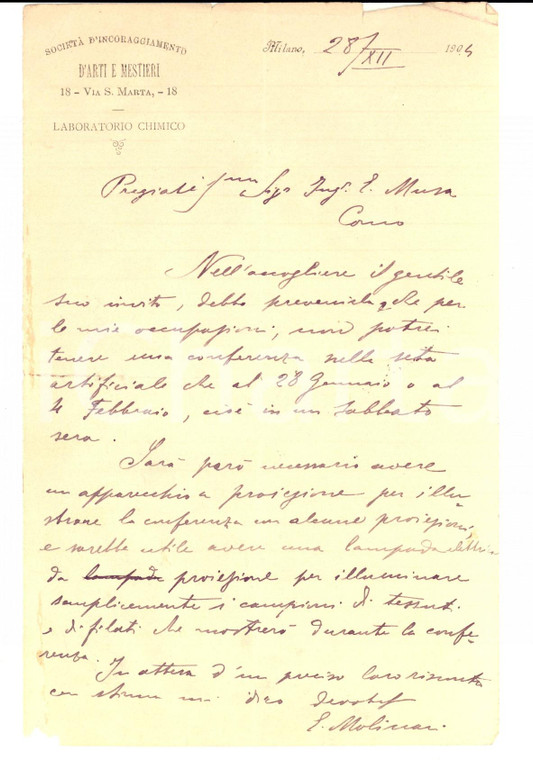 SOCIETÀ D'INCORAGGIAMENTO
D'ARTI E MESTIERI
18 – VIA S. MARTA, – 18
LABORATORIO CHIMICO
Milano, 28/XII 1904
Pregiatissmo Sigr Ingr. E. Musa
Como
Nell'accogliere il gentile
suo invito, debbo prevenirla che per
le mie occupazioni, non potrei
tenere una conferenza sulla seta
artificiale che al 28 Gennaio o al
4 Febbraio, cioè in un sabbato
sera.
Sarà però necessario avere
un apparecchio a proiezione per illu-
strare la conferenza con alcune proiezioni
e sarebbe utile avere una lampada elettri-
da lampada proiezione per illuminare
semplicemente i campioni di tessuti
e di filati che mostrerò durante la confe-
renza.
In attesa d'un preciso loro riscontro
con stima mi dico devotis
E. Molinari